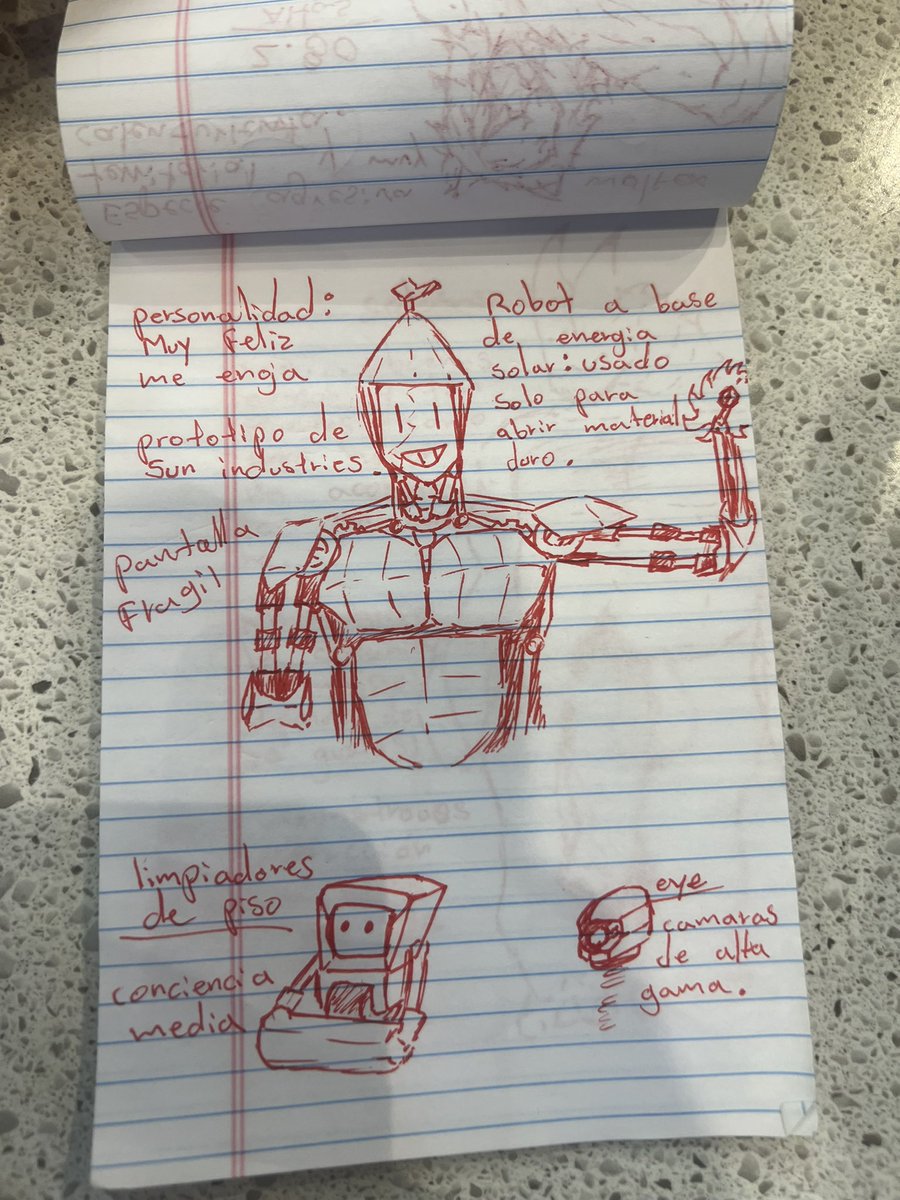 Altos
2.80
calenturienta.
territorial y muy
Especie agresiva
personalidad:
Muy feliz
me enoja
prototipo de
Sun industries.
pantalla
fragil
Robot a base
de energia
solar: usado
solo para
abrir material
duro.
limpiadores
de piso
conciencia
media
eye
camaras
de alta
gama.